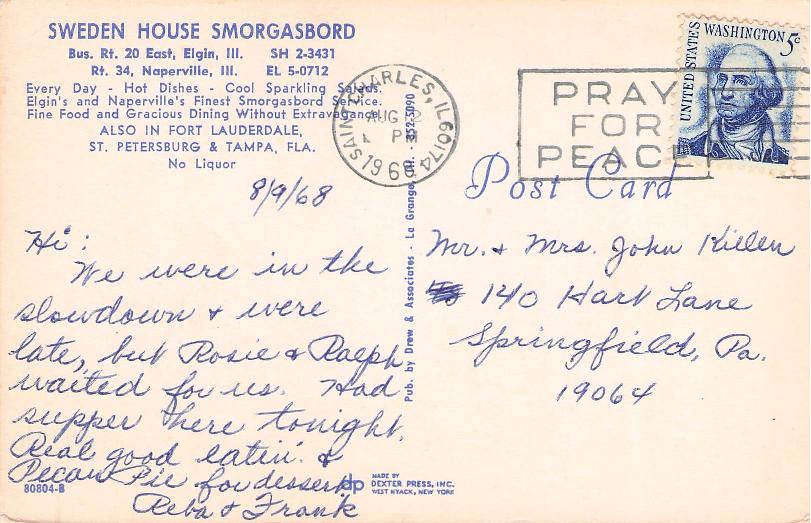 SWEDEN HOUSE SMORGASBORD
Bus. Rt. 20 East, Elgin, Ill. SH 2-3431
Rt. 34, Naperville, Ill. EL 5-0712
Every Day - Hot Dishes - Cool Sparkling Salads.
Elgin's and Naperville's Finest Smorgasbord Service.
Fine Food and Gracious Dining Without Extravagance.
ALSO IN FORT LAUDERDALE,
ST. PETERSBURG & TAMPA, FLA.
No Liquor
8/9/68
Hi:
We were in the
slowdown & were
late, but Rosie & Ralph
waited for us. Had
supper here tonight.
Real good eatin'. &
Pecan Pie for dessert.
Reba & Frank
80804-B
dp
MADE BY
DEXTER PRESS, INC.
WEST NYACK, NEW YORK
Pub. by Drew & Associates - La Grange, Ill. - 352-5090
SAINT CHARLES, IL 60174
AUG 12
PM
1968
PRAY
FOR
PEACE
UNITED STATES
WASHINGTON 5c
Post Card
Mr. & Mrs. John Killen
140 Hart Lane
Springfield, Pa.
19064